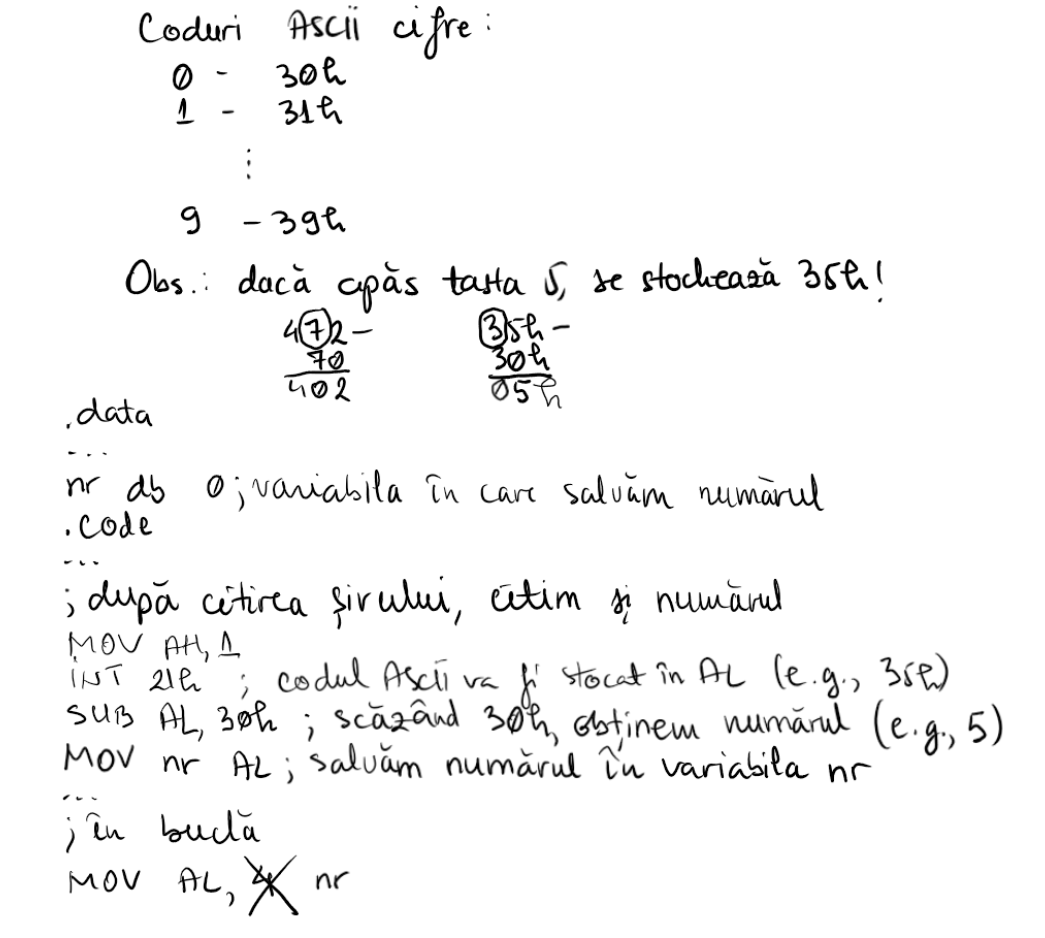 Coduri Ascii cifre:
0 - 30h
1 - 31h
⋮
9 - 39h
Obs.: dacă apăs tasta 5, se stochează 35h!
472 - 35h -
70 30h
402 05h
.data
...
nr db 0; variabila în care salvăm numărul
.code
...
; după citirea șirului, citim și numărul
MOV AH, 1
INT 21h ; codul Ascii va fi stocat în AL (e.g., 35h)
SUB AL, 30h ; scăzând 30h, obținem numărul (e.g., 5)
MOV nr AL; salvăm numărul în variabila nr
...
; în buclă
MOV AL, nr